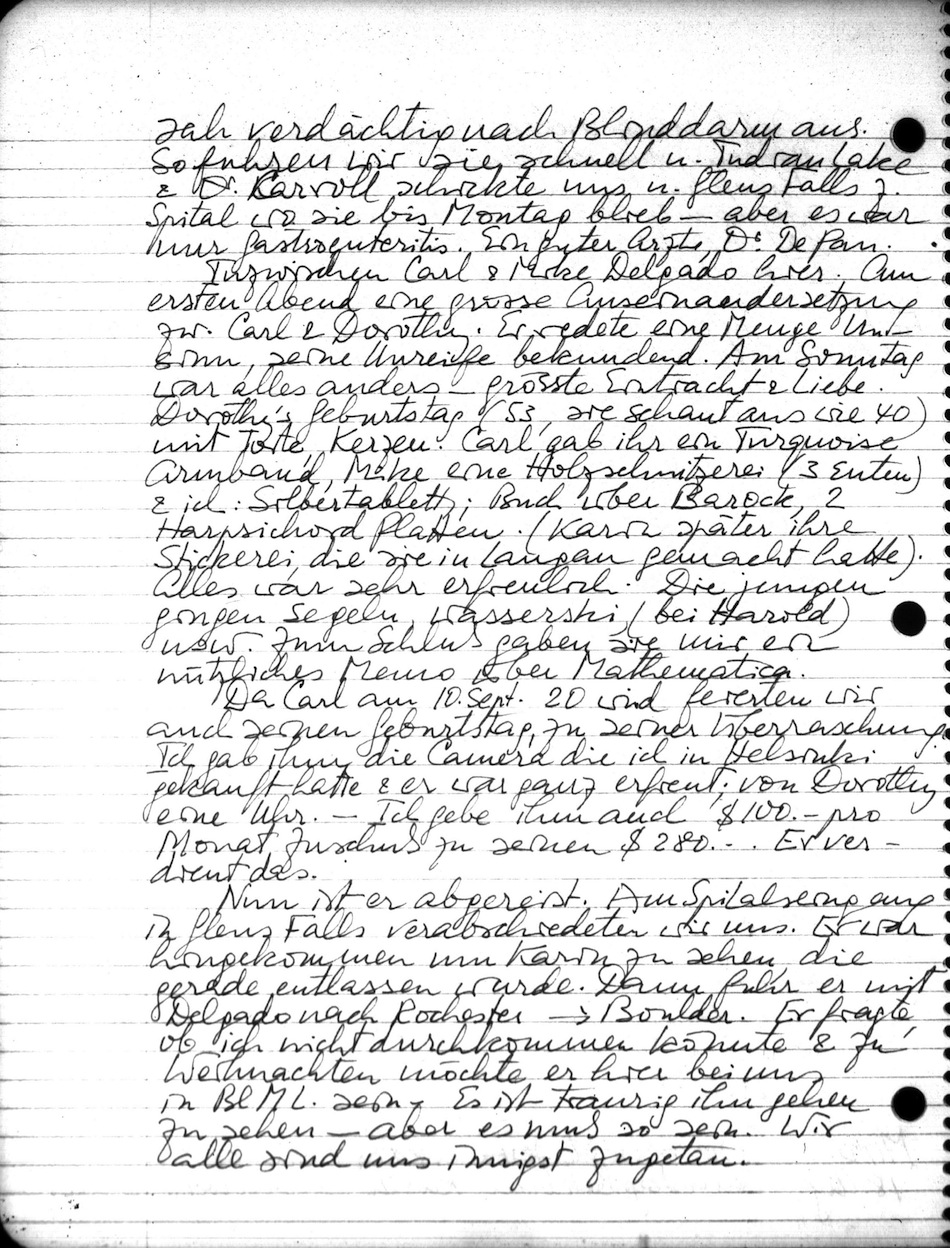 sah verdächtig nach Blinddarm aus.
So fuhren wir sie schnell n. Indian Lake
& Dr. Carroll schickte uns n. Glens Falls z.
Spital wo sie bis Montag blieb – aber es war
nur Gastroenteritis. Ein guter Arzt, Dr. De Pan.
Inzwischen Carl & Mike Delgado hier. Am
ersten Abend eine grosse Auseinandersetzung
zw. Carl & Dorothy. Er redete eine Menge Un-
sinn, seine Unreife bekundend. Am Sonntag
war alles anders – grösste Eintracht & Liebe.
Dorothy's Geburtstag (53, sie schaut aus wie 40)
mit Torte, Kerzen. Carl gab ihr ein Turquoise
Armband, Mike eine Holzschnitzerei (3 Enten)
& ich: Silbertablett; Buch über Barock, 2
Harpsichord Platten. (Karin später ihre
Stickerei, die sie in gemacht hatte).
Alles war sehr erfreulich. Die jungen
gingen segeln, wasserski (bei Harold)
usw. Zum Schluß gaben sie mir ein
nützliches Memo über Mathematica.
Da Carl am 10. Sept. 20 wird feierten wir
auch seinen Geburtstag, zu seiner Überraschung.
Ich gab ihm die Camera die ich in Helsinki
gekauft hatte & er war ganz erfreut; von Dorothy
eine Uhr. – Ich gebe ihm auch $100.– pro
Monat Zuschuß zu seinen $280.–. Er ver-
dient das.
Nun ist er abgereist. Am Spitalseingang
in Glens Falls verabschiedeten wir uns. Er war
hingekommen um Karin zu sehen, die
gerade entlassen wurde. Dann fuhr er mit
Delgado nach Rochester → Boulder. Er fragte,
ob ich nicht durchkommen könnte & zu
Weihnachten möchte er hier bei uns
in Bl M L. sein – Es ist traurig ihn gehen
zu sehen – aber es muß so sein. Wir
alle sind uns innigst zugetan.